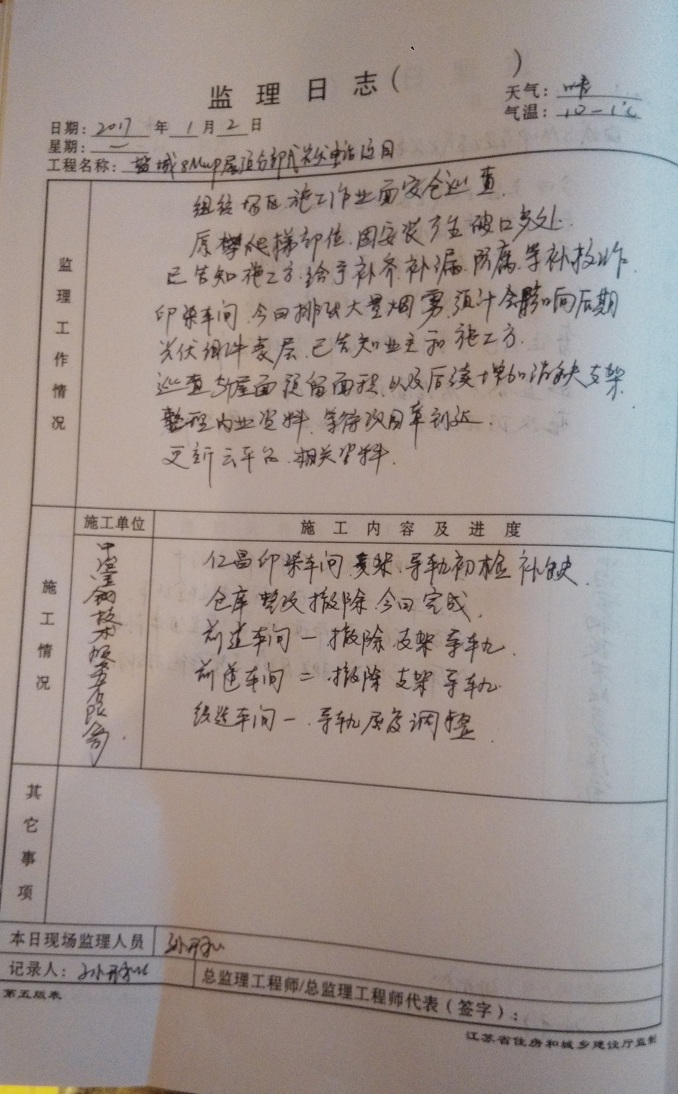 监理日志( )
天气: 晴
气温: 10-1℃
日期: 2017 年 1 月 2 日
星期: 一
工程名称: 盐城8Mwp屋顶分部式光伏电站项目
监理工作情况
组织场区施工作业面安全巡查.
原攀爬梯部位,因安装产生破口多处.
已告知施工方.给予补齐.补漏.防腐.等补救工作
印染车间.今日排出大量烟雾.预计会影响后期
光伏组件表层.已告知业主和施工方.
巡查 屋面预留面积.以及后续增加 支架.
整理内业资料.等待
更新云平台.相关资料.
施工情况
施工单位
施工内容及进度
仁昌印染车间 支架.导轨初检 补缺.
仓库整改拆除.今日完成.
前道车间一拆除.支架导轨.
前道车间二.拆除支架导轨.
车间一.导轨 调整.
其它事项
本日现场监理人员
记录人:
总监理工程师/总监理工程师代表(签字):
第五版表
江苏省住房和城乡建设厅监制